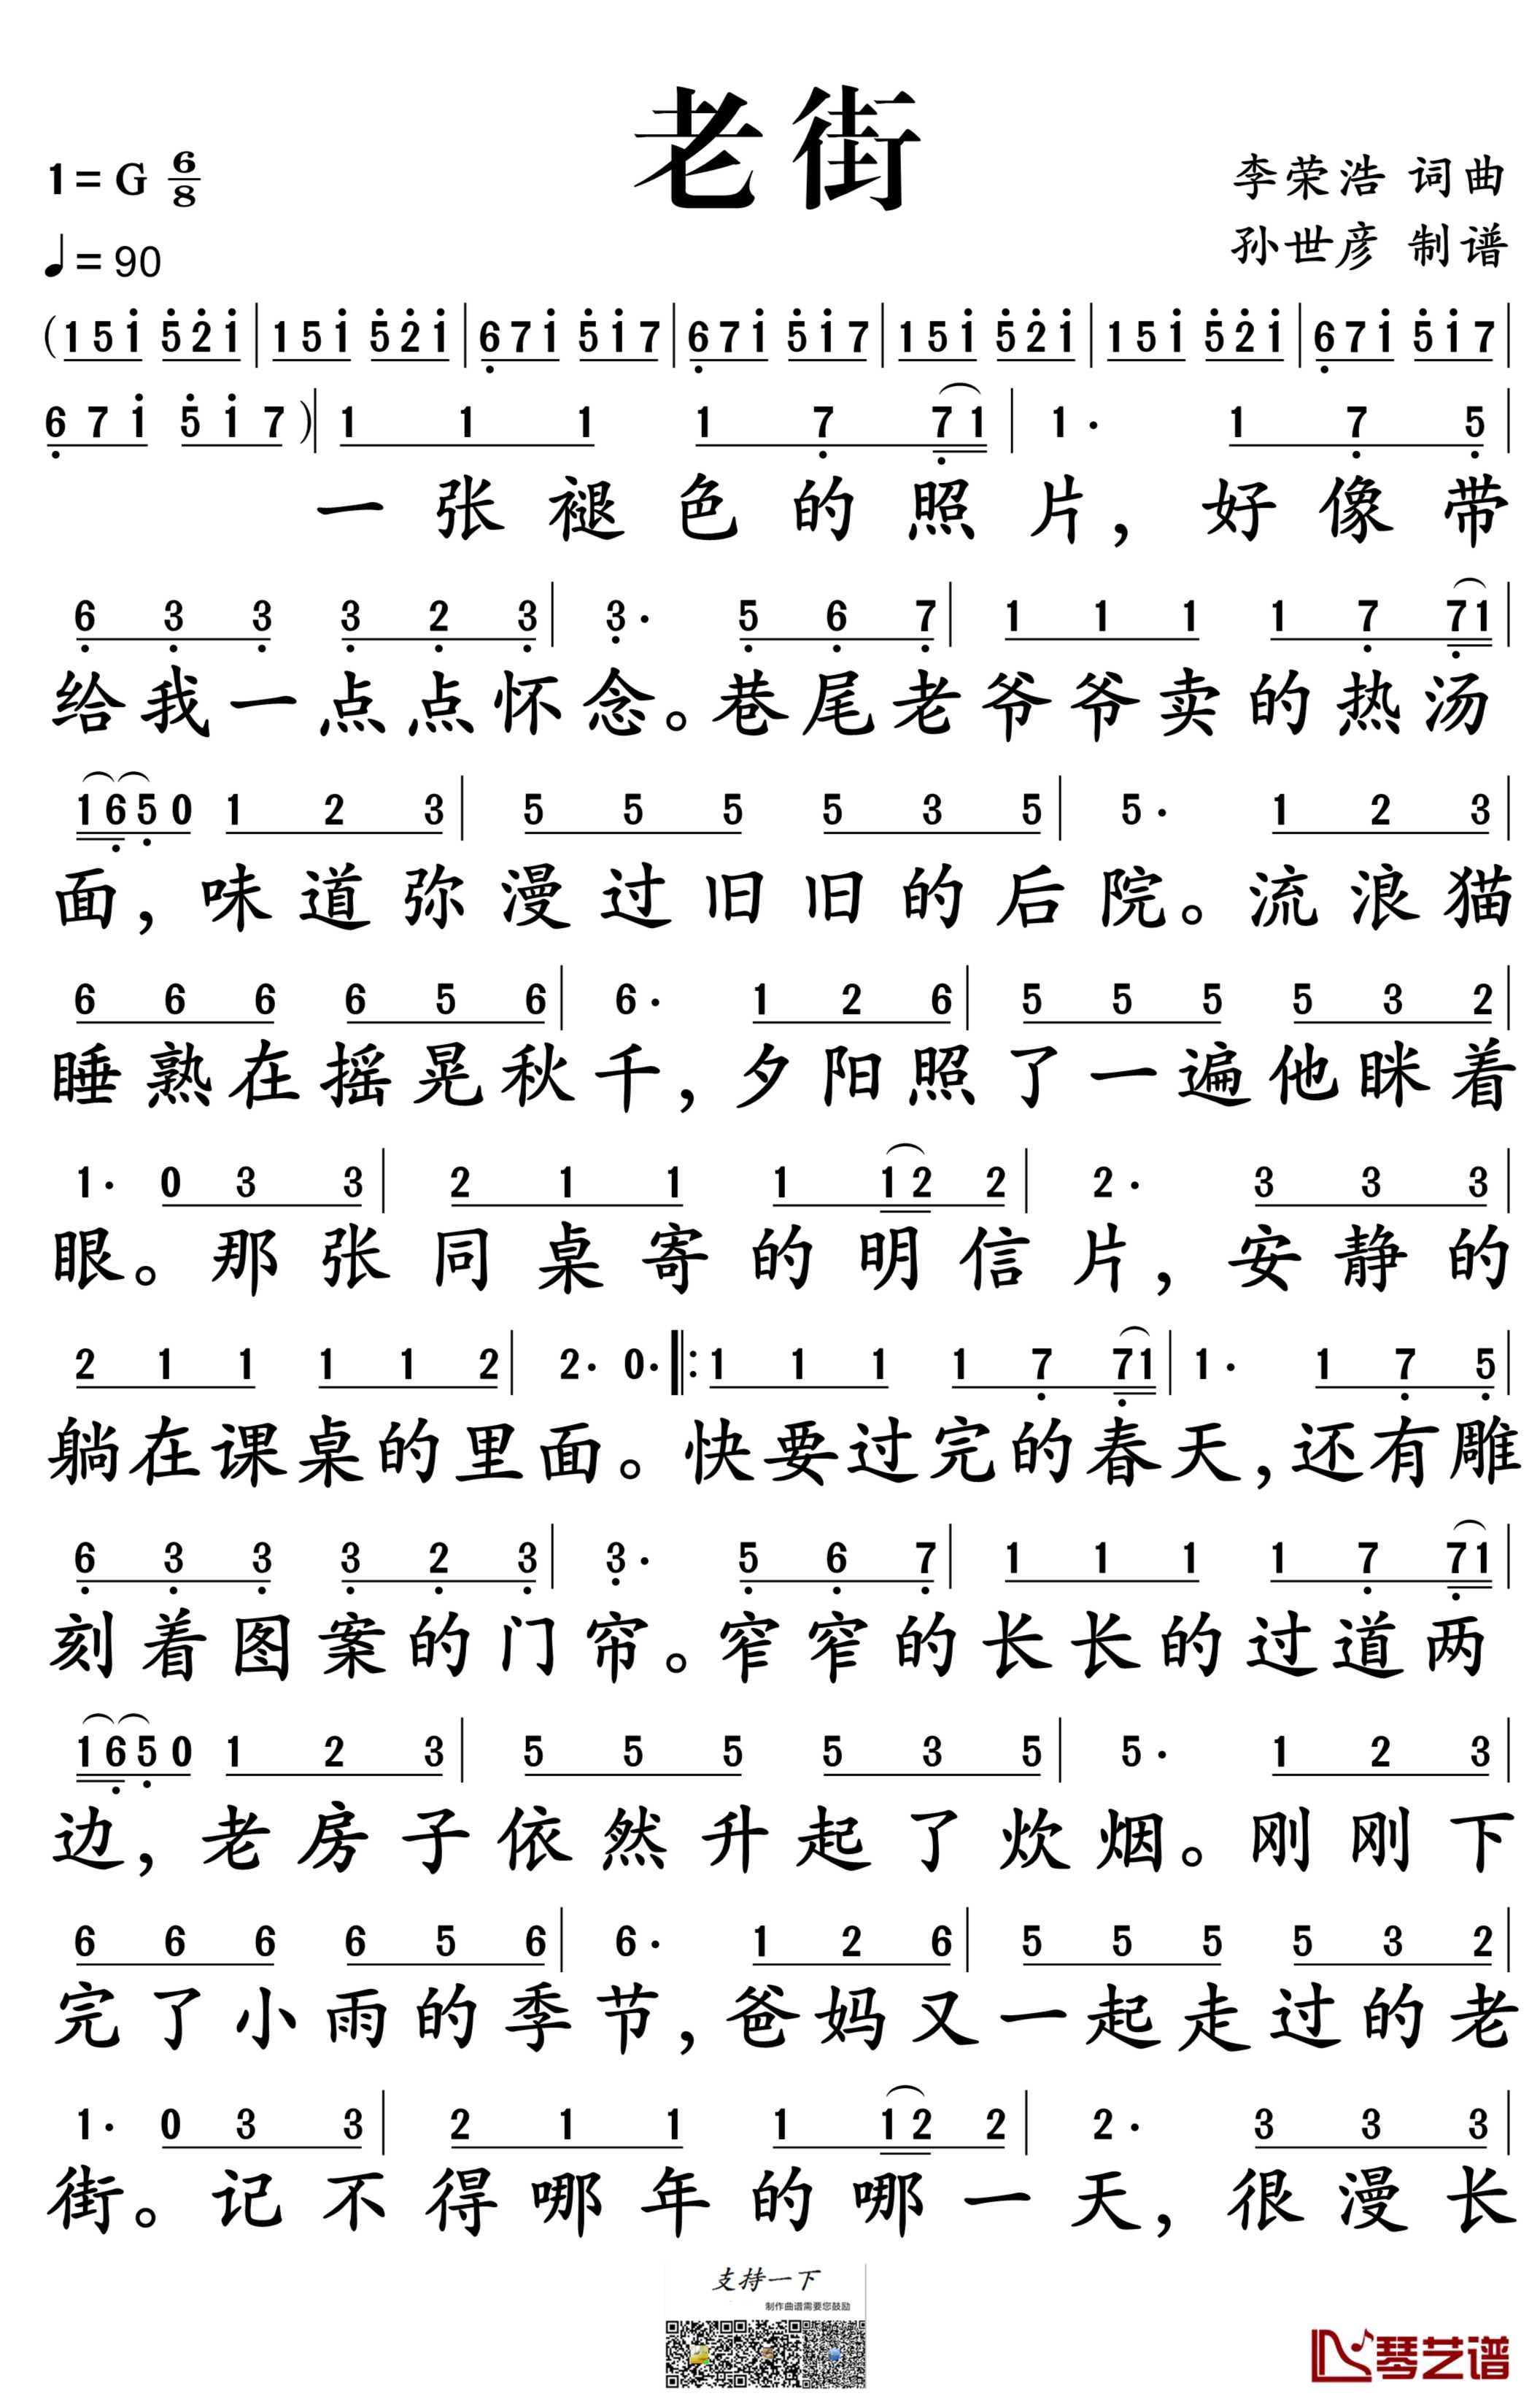 老街
1=G 6/8
李荣浩 词曲
♩=90
孙世彦 制谱
(151̇ 5̇2̇1̇|151̇ 5̇2̇1̇|6̣71̇ 5̇1̇7|6̣71̇ 5̇1̇7|151̇ 5̇2̇1̇|151̇ 5̇2̇1̇|6̣71̇ 5̇1̇7|
6̣71̇ 5̇1̇7)|1 1 1 1 7̣ 7̣1|1· 1 7̣ 5̣|
一张褪色的照片，好像带
6̣ 3̣ 3̣ 3̣ 2̣ 3̣|3̣· 5̣ 6̣ 7̣|1 1 1 1 7̣ 7̣1|
给我一点点怀念。巷尾老爷爷卖的热汤
16̣5̣0 1 2 3|5 5 5 5 3 5|5· 1 2 3|
面，味道弥漫过旧旧的后院。流浪猫
6 6 6 6 5 6|6· 1 2 6|5 5 5 5 3 2|
睡熟在摇晃秋千，夕阳照了一遍他眯着
1· 0 3 3|2 1 1 1 12 2|2· 3 3 3|
眼。那张同桌寄的明信片，安静的
2 1 1 1 1 2|2· 0·‖:1 1 1 1 7̣ 7̣1|1· 1 7̣ 5̣|
躺在课桌的里面。快要过完的春天，还有雕
6̣ 3̣ 3̣ 3̣ 2̣ 3̣|3̣· 5̣ 6̣ 7̣|1 1 1 1 7̣ 7̣1|
刻着图案的门帘。窄窄的长长的过道两
16̣5̣0 1 2 3|5 5 5 5 3 5|5· 1 2 3|
边，老房子依然升起了炊烟。刚刚下
6 6 6 6 5 6|6· 1 2 6|5 5 5 5 3 2|
完了小雨的季节，爸妈又一起走过的老
1· 0 3 3|2 1 1 1 12 2|2· 3 3 3|
街。记不得哪年的哪一天，很漫长
支持一下
制作曲谱需要您鼓励
琴艺谱